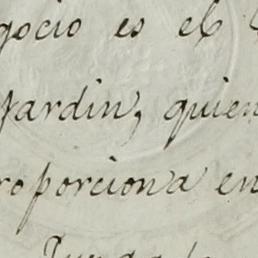 gocio es el
Jardin, quien
roporciona en